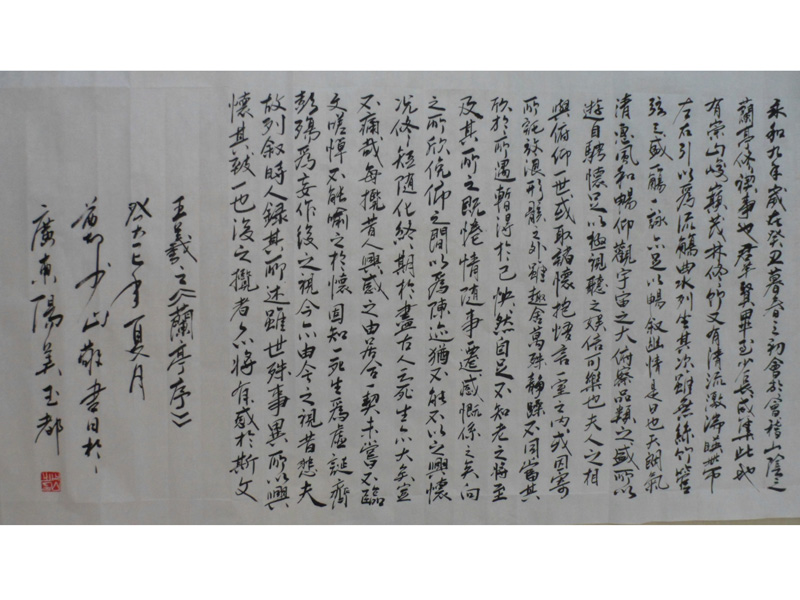 永和九年歲在癸丑暮春之初會於會稽山陰之
蘭亭修禊事也群賢畢至少長咸集此地
有崇山峻嶺茂林修竹又有清流激湍映帶
左右引以為流觴曲水列坐其次雖無絲竹管
弦之盛一觴一詠亦足以暢敘幽情是日也天朗氣
清惠風和暢仰觀宇宙之大俯察品類之盛所以
遊目騁懷足以極視聽之娛信可樂也夫人之相
與俯仰一世或取諸懷抱悟言一室之內或因寄
所託放浪形骸之外雖趣舍萬殊靜躁不同當其
欣於所遇暫得於己快然自足不知老之將至
及其所之既惓情隨事遷感慨係之矣向
之所欣俛仰之間以為陳迹猶不能不以之興懷
況修短隨化終期於盡古人云死生亦大矣豈
不痛哉每攬昔人興感之由若合一契未嘗不臨
文嗟悼不能喻之於懷固知一死生為虛誕齊
彭殤為妄作後之視今亦由今之視昔悲夫
故列敘時人錄其所述雖世殊事異所以興
懷其致一也後之攬者亦將有感於斯文
王羲之《蘭亭序》
年夏月
少山敬書
廣東陽美玉都